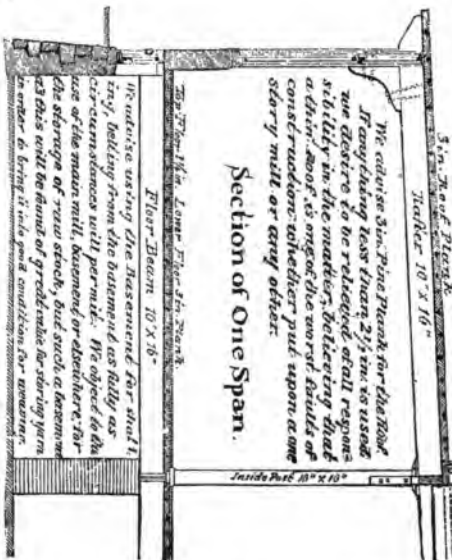 3 in Roof Plank
Rafter 10" X 16"
We advise 3 in. Pine Plank for the Roof.
If anything less than 2½ in. is used
we desire to be relieved of all respon-
sibility in the matter, believing that
a thin roof is one of the worst faults of
construction whether put upon a one
story mill or any other.
Section of One Span.
Inside Post 10" X 10"
Top Floor Lower Floor 3 in Plank.
Floor Beam 10 X 16"
We advise using the Basement for shaft-
ing, belting from the basement as fully as
circumstances will permit. We object to the
use of the main mill, basement or elsewhere, for
the storage of raw stock, but such a basement
as this will be found of great value for storing yarn
in order to bring it into good condition for weaving.